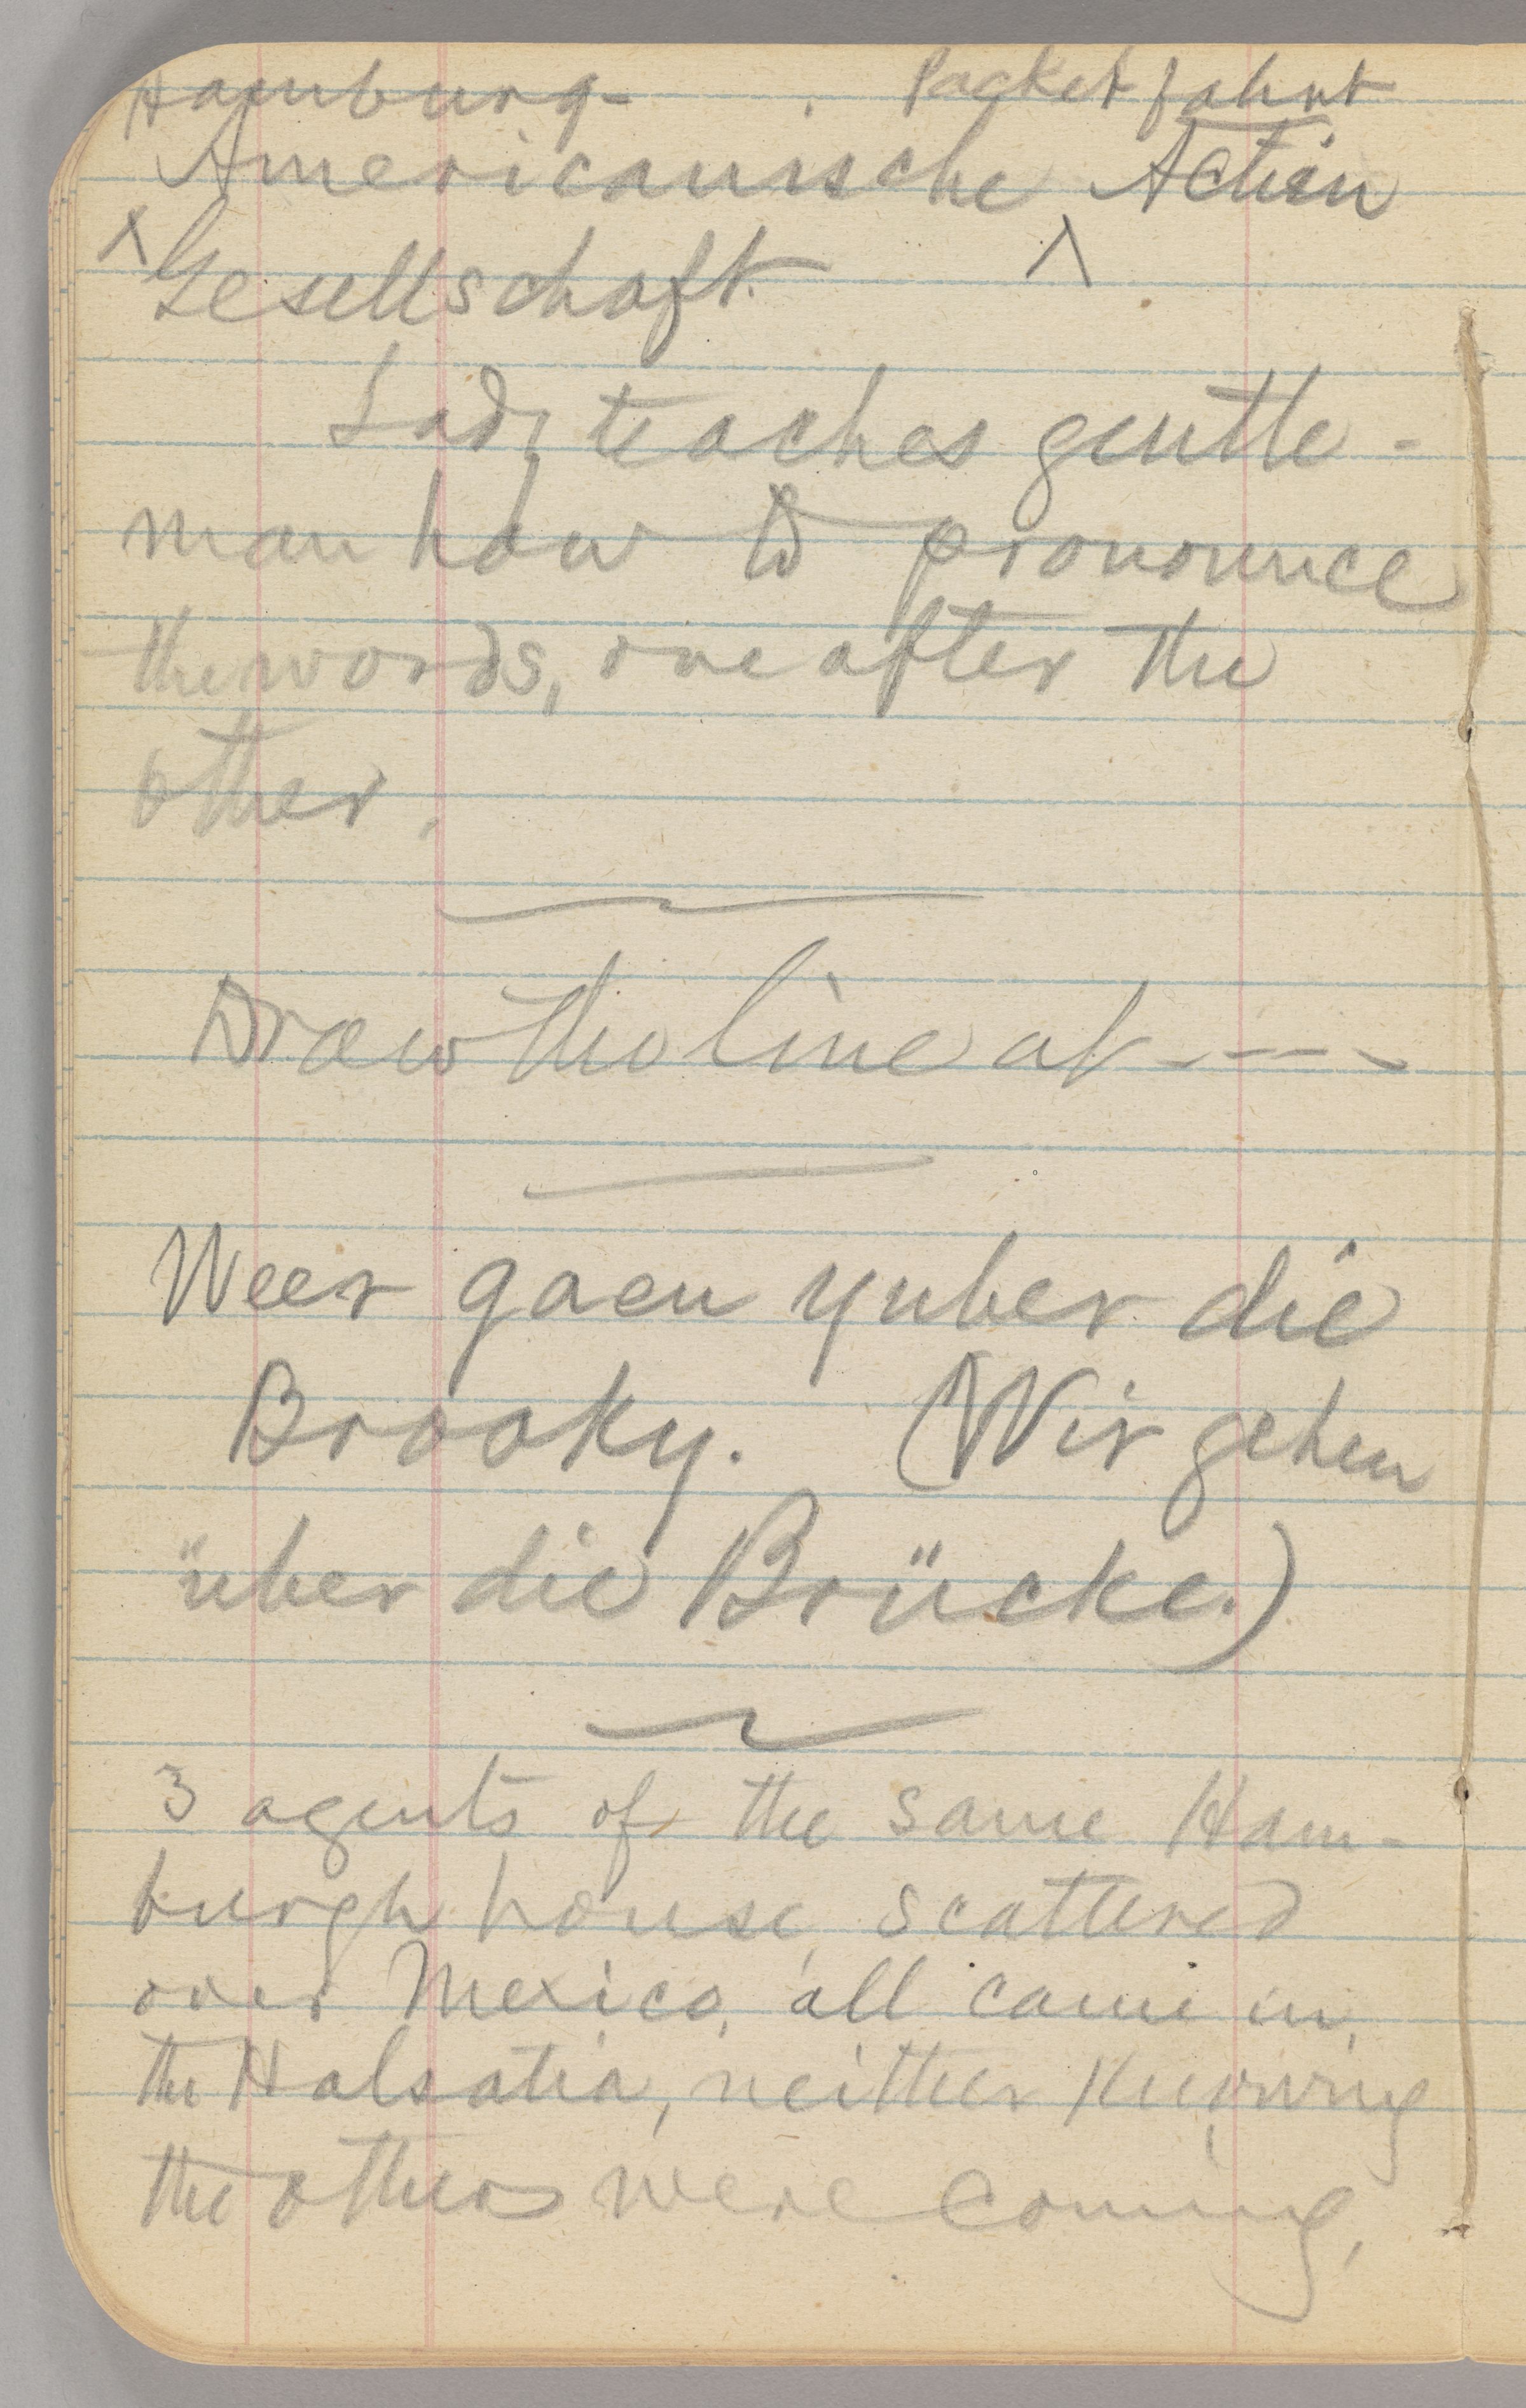 Hamburg- Packetfahrt
Americanische Actien
^ Gesellschaft. ^
Lady teaches gentle-
man how to pronounce
the words, one after the
other.
Draw the line at ----
Weer gaen yuber die
Brooky. (Wir gehen
über die Brücke.)
3 agents of the same Ham-
burgh house, scattered
over Mexico, all came in
the Holsatia, neither knowing
the others were coming.